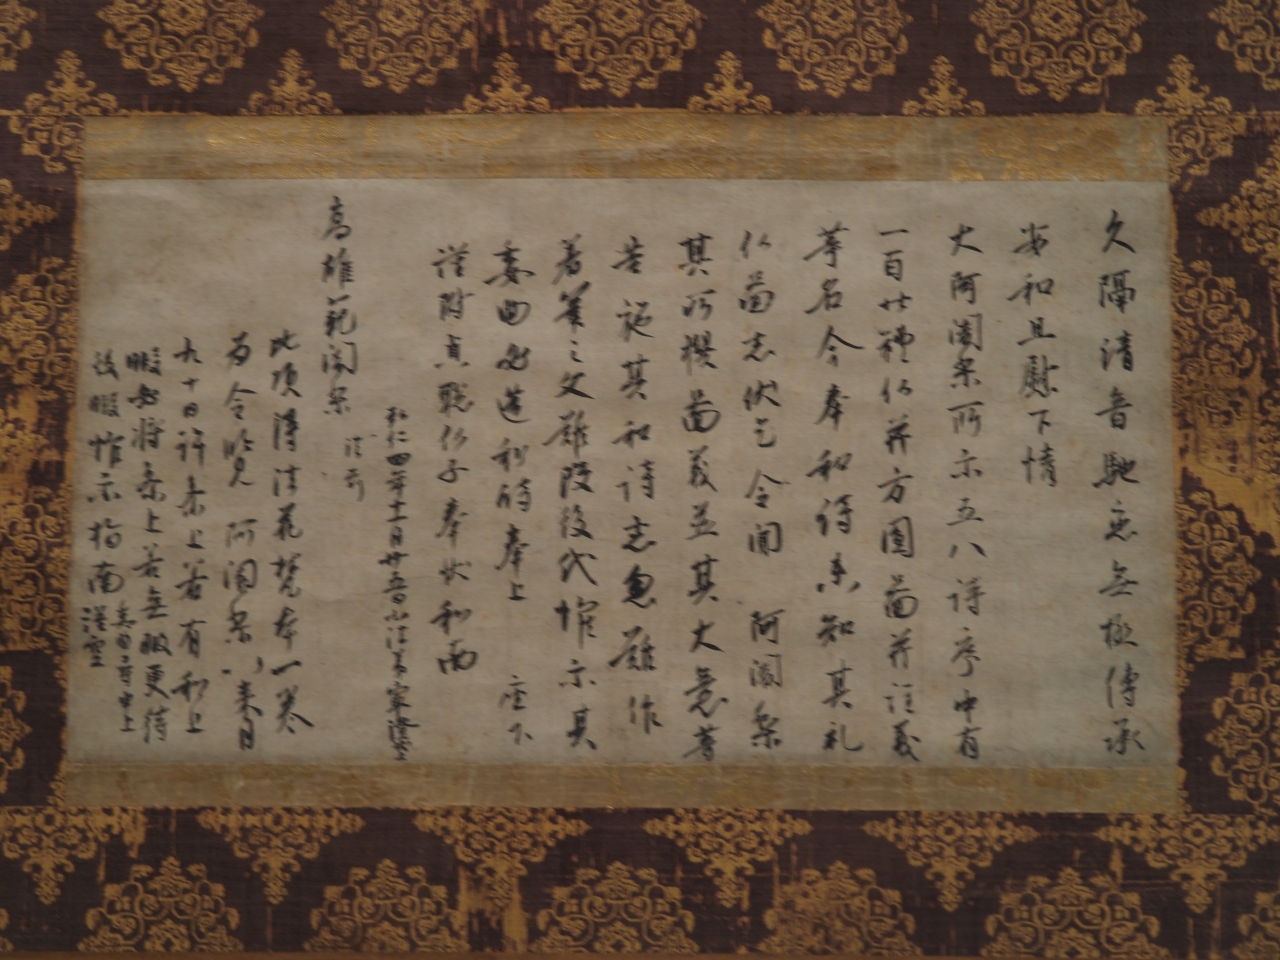 久隔清音馳戀無極傳承
安和且慰下情
大阿闍梨所示五八詩序中有
一百廿禮仏并方圓圖并註義
等名今奉和詩未知其礼
仏圖志伏乞令聞 阿闍梨
其所撰圖義並其大意等
告施其和詩者忽難作
著筆之文難改後代惟示其
委曲必造和詩奉上 座下
謹附貞聡仏子奉状和南
弘仁四年十一月廿五日小法弟最澄状上
高雄範闍梨
法前
此頃得法花梵本一巻
為令覧 阿闍梨以来月
九十日許参上若有和上
暇必将参上若無暇更待
後暇惟示指南 謹空